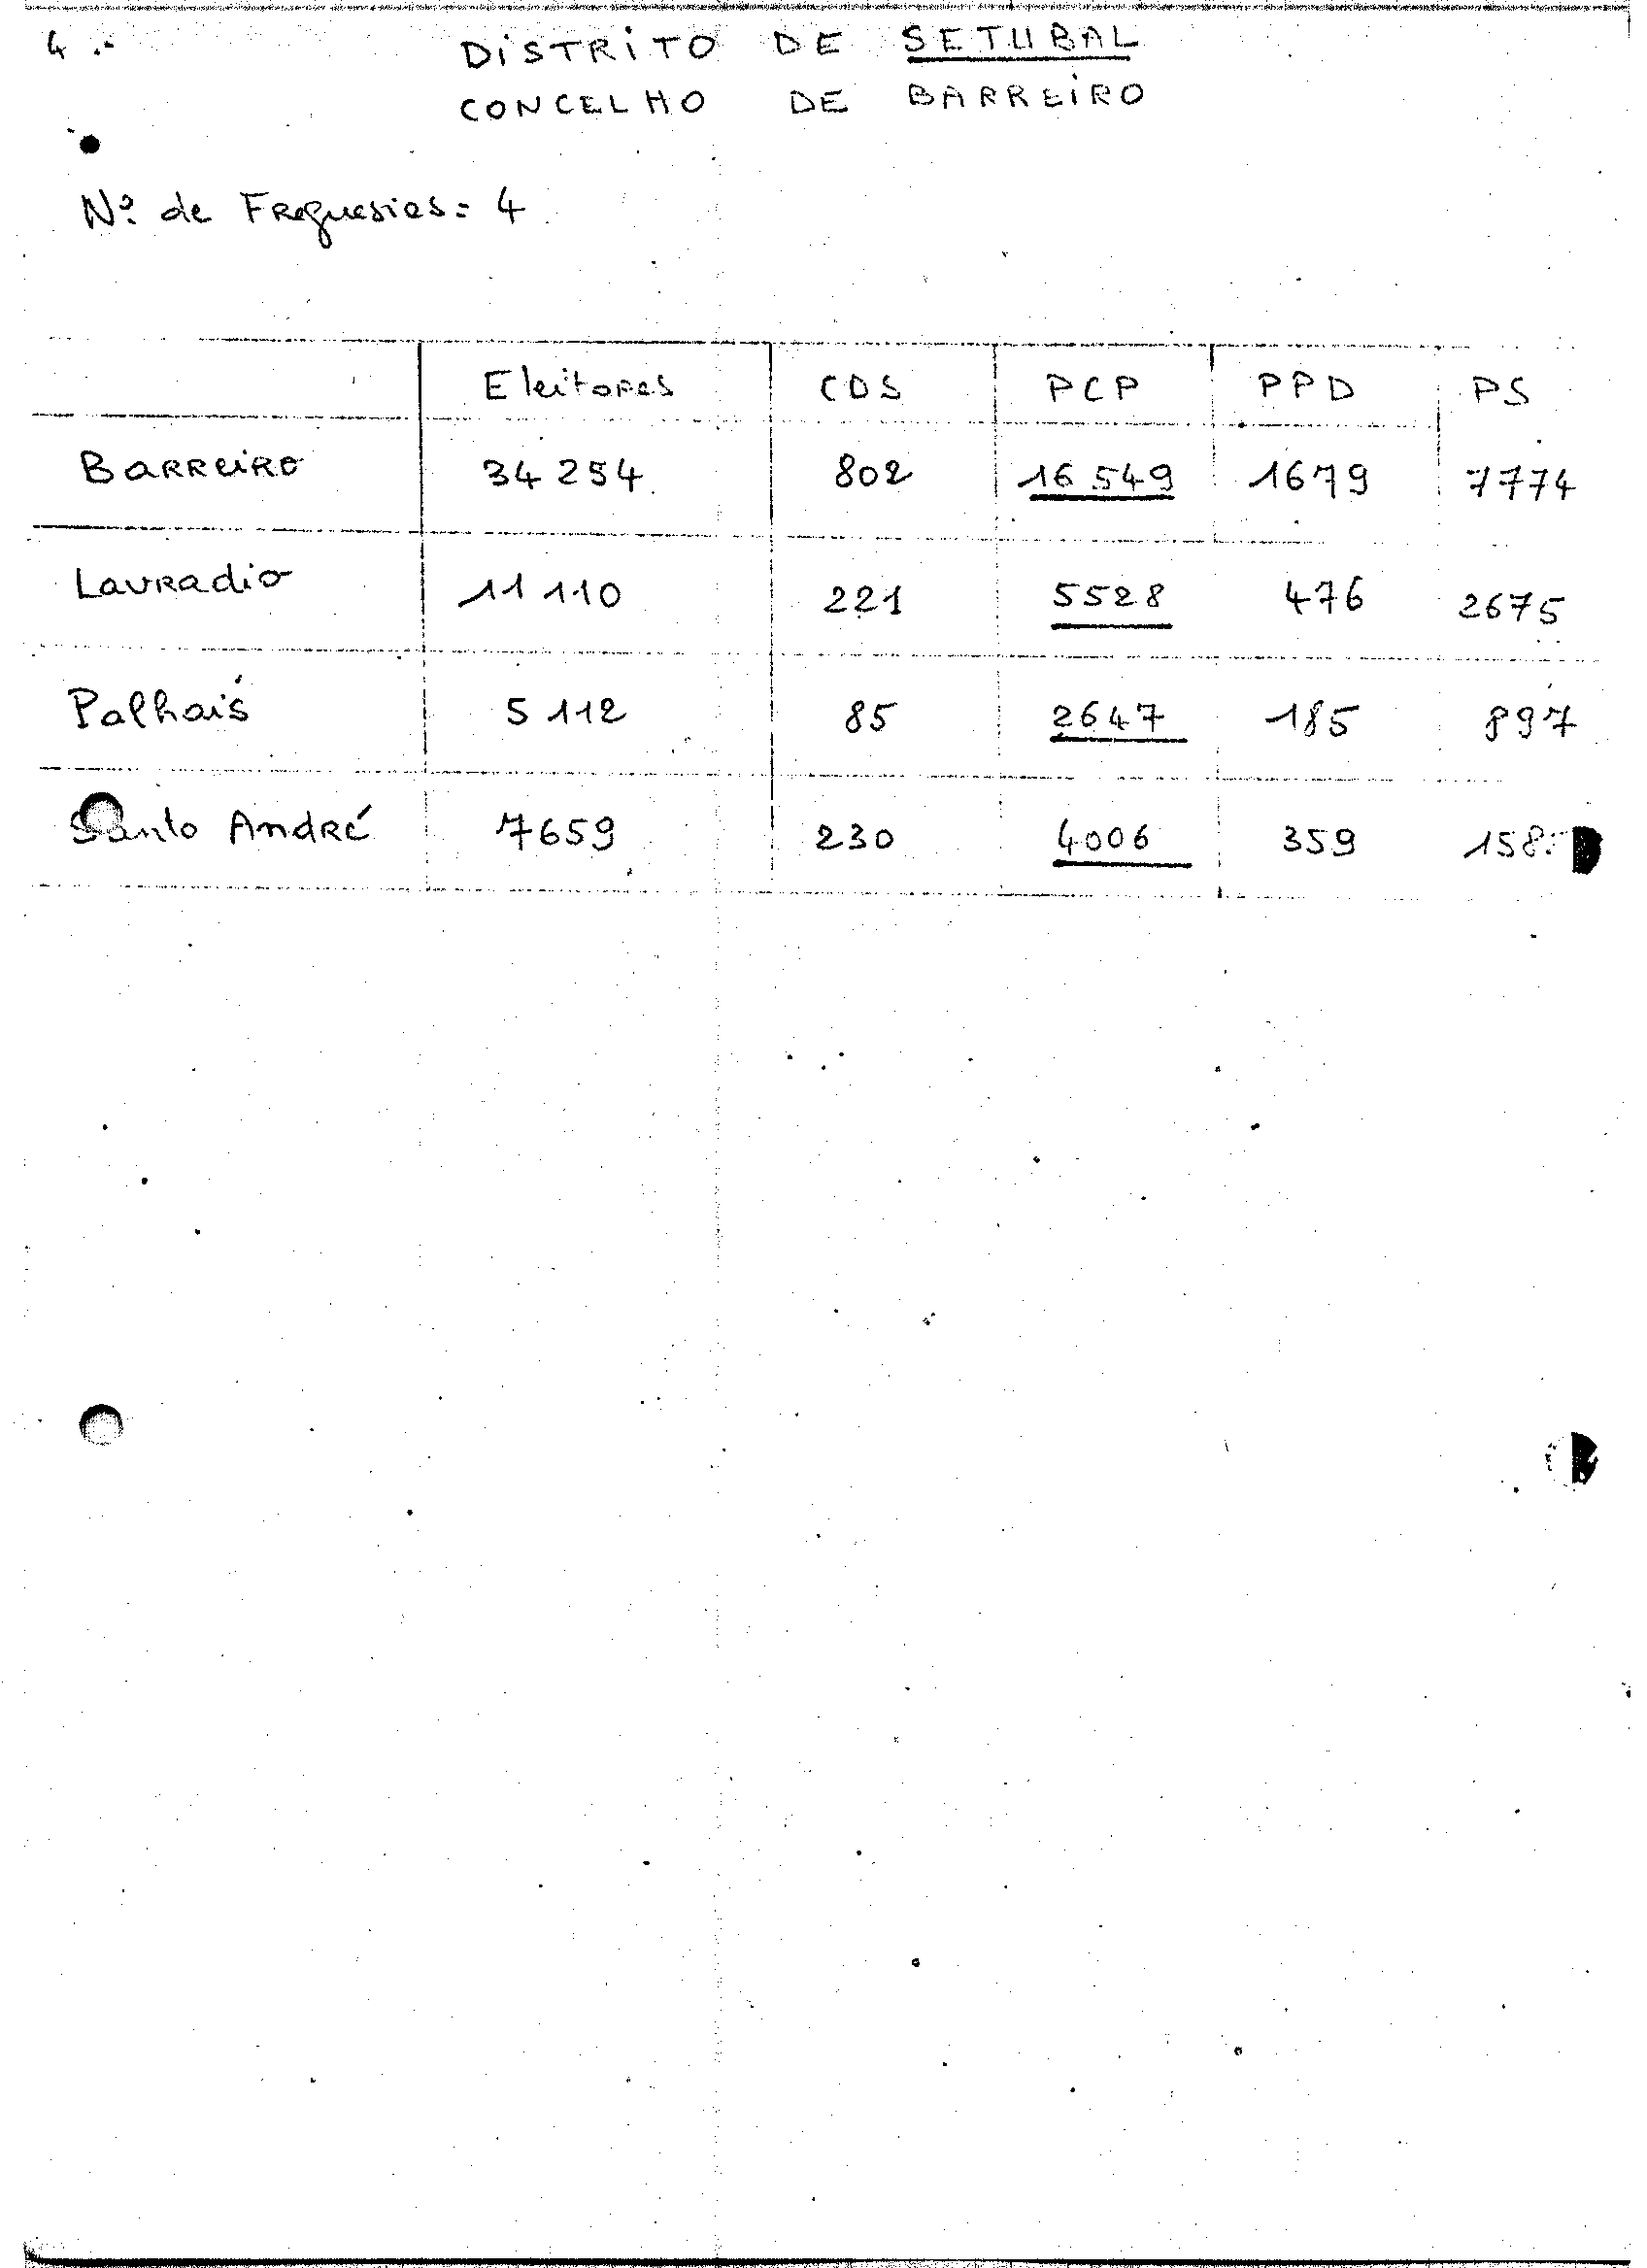 4.-
DiSTRiTO DE SETUBAL
CONCELHO DE BARREiRO
Nº. de Freguesias = 4
Eleitores CDS PCP PPD PS
Barreiro 34 254 802 16 549 1679 7774
Lavradio 11 110 221 5528 476 2675
Palhais 5 112 85 2647 185 897
Santo André 7659 230 4006 359